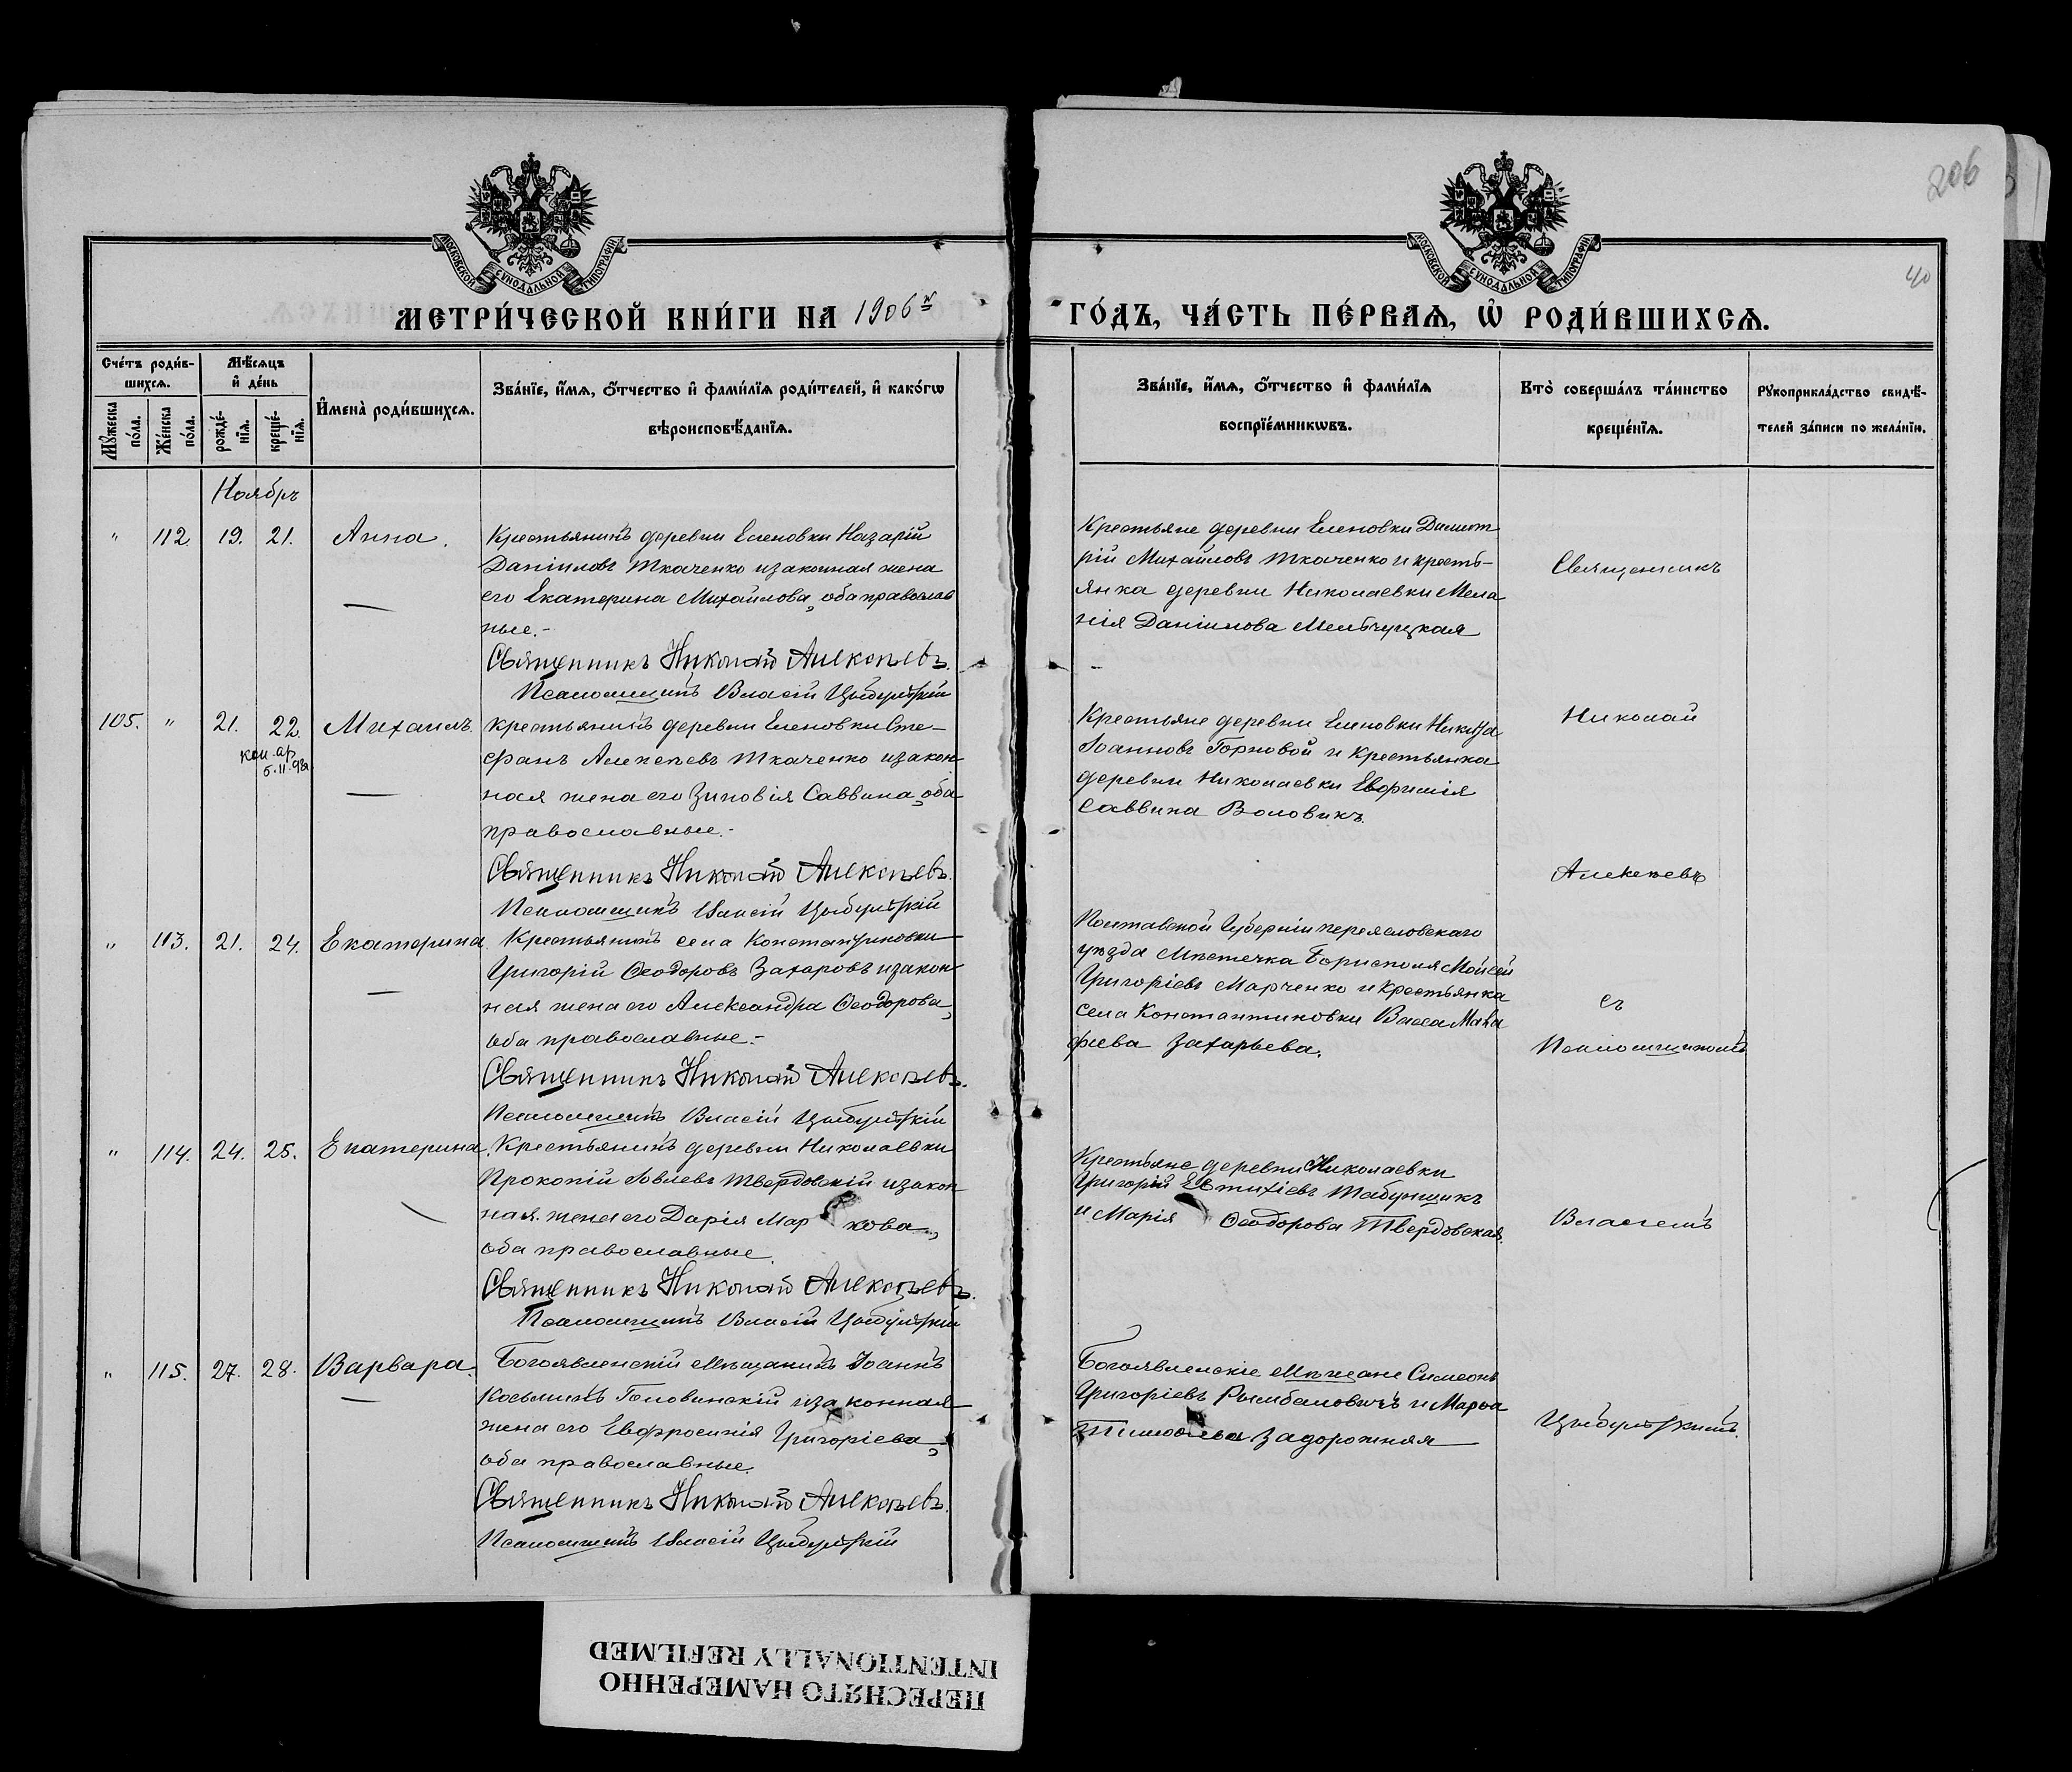 206
40
МОСКОВСКОЙ СѴНОДАЛЬНОЙ ТИПОГРАФІИ
МОСКОВСКОЙ СѴНОДАЛЬНОЙ ТИПОГРАФІИ
МЕТРИ́ЧЕСКОЙ КНИ́ГИ НА 1906й
ГО́ДЪ, ЧА́СТЬ ПЕ́РВАЯ, Ѡ РОДИ́ВШИХСЯ.
Сче́тъ роди́в-
шихсѧ.
Мѣ́сѧцъ
и҆ де́нь
Мꙋ́жеска
по́ла.
Же́нска
по́ла.
рожде́-
нїѧ.
креще́-
нїѧ.
И҆мена̀ роди́вшихсѧ.
Зва́нїе, и҆́мѧ, ѻ҆́тчество и҆ фами́лїѧ роди́телей, и҆ како́гѡ
вѣроисповѣ́данїѧ.
Зва́нїе, и҆́мѧ, ѻ҆́тчество и҆ фами́лїѧ
воспрїе́мникѡвъ.
Кто̀ соверша́лъ та́инство
креще́нїѧ.
Рꙋкоприкла́дство свидѣ́-
телей за́писи по жела́нїю.
Ноябрь
" 112. 19. 21. Анна.
Крестьянинъ деревни Еленовки Назарій
Даніиловъ Ткаченко и законная жена
его Екатерина Михайлова, оба православ
ные.-
Священникъ Николай Алексѣевъ.
Псаломщикъ Власій Цыбульскій
Крестьяне деревни Еленовки Димит
рій Михайловъ Ткаченко и кресть-
янка деревни Николаевки Мела
нія Даніилова
Священникъ
105. " 21. 22. Михаилъ.
Крестьянинъ деревни Еленовки Сте-
фанъ Алексѣевъ Ткаченко и закон
ная жена его Зиновія Саввина, оба
православные.-
Священникъ Николай Алексѣевъ.
Псаломщикъ Власій Цыбульскій
Крестьяне деревни Еленовки Никита
Іоанновъ Горновой и крестьянка
деревни Николаевки Евфимія
Саввина Воловикъ.
Николай
Алексѣевъ
" 113. 21. 24. Екатерина.
Крестьянинъ села Константиновки
Григорій Ѳеодоровъ Захаровъ и закон
ная жена его Александра Ѳеодорова,
оба православные.-
Священникъ Николай Алексѣевъ.
Псаломщикъ Власій Цыбульскій
Полтавской Губерніи Переясловскаго
уѣзда Мѣстечка Борисполя Моисей
Григоріевъ Марченко и крестьянка
села Константиновки Васса Мака
рьева Захарьева.
съ
Псаломщикомъ
" 114. 24. 25. Екатерина.
Крестьянинъ деревни Николаевки
Прокопій Іовлевъ Твердовскій и закон
ная жена его Дарія Мар кова,
оба православные.
Священникъ Николай Алексѣевъ.
Псаломщикъ Власій Цыбульскій
Крестьяне деревни Николаевки
Григорій Евтихіевъ Табунщикъ
и Марія Ѳеодорова Твердовская.
Власіемъ
" 115. 27. 28. Варвара.
Богоявленскій Мѣщанинъ Іоаннъ
Косьминъ Головинскій и за конная
жена его Евфросинія Григоріева,
оба православные.
Священникъ Николай Алексѣевъ.
Псаломщикъ Власій Цыбульскій
Богоявленскіе Мѣщане Симеонъ
Григоріевъ Рымбаловичъ и Марѳа
Задорожняя
Цыбульскимъ.
ПЕРЕСНЯТО НАМЕРЕННО
INTENTIONALLY REFILMED